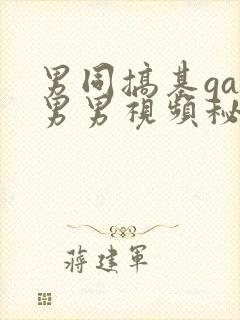 男同搞基ga
男男视频秘
蒋建军